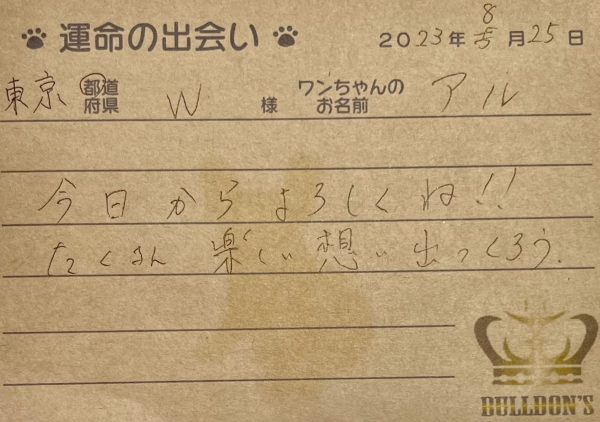 運命の出会い 2023年8月25日
東京 都道府県 W 様 ワンちゃんのお名前 アル
今日からよろしくね!!
たくさん楽しい想い出つくろう.
BULLDON'S